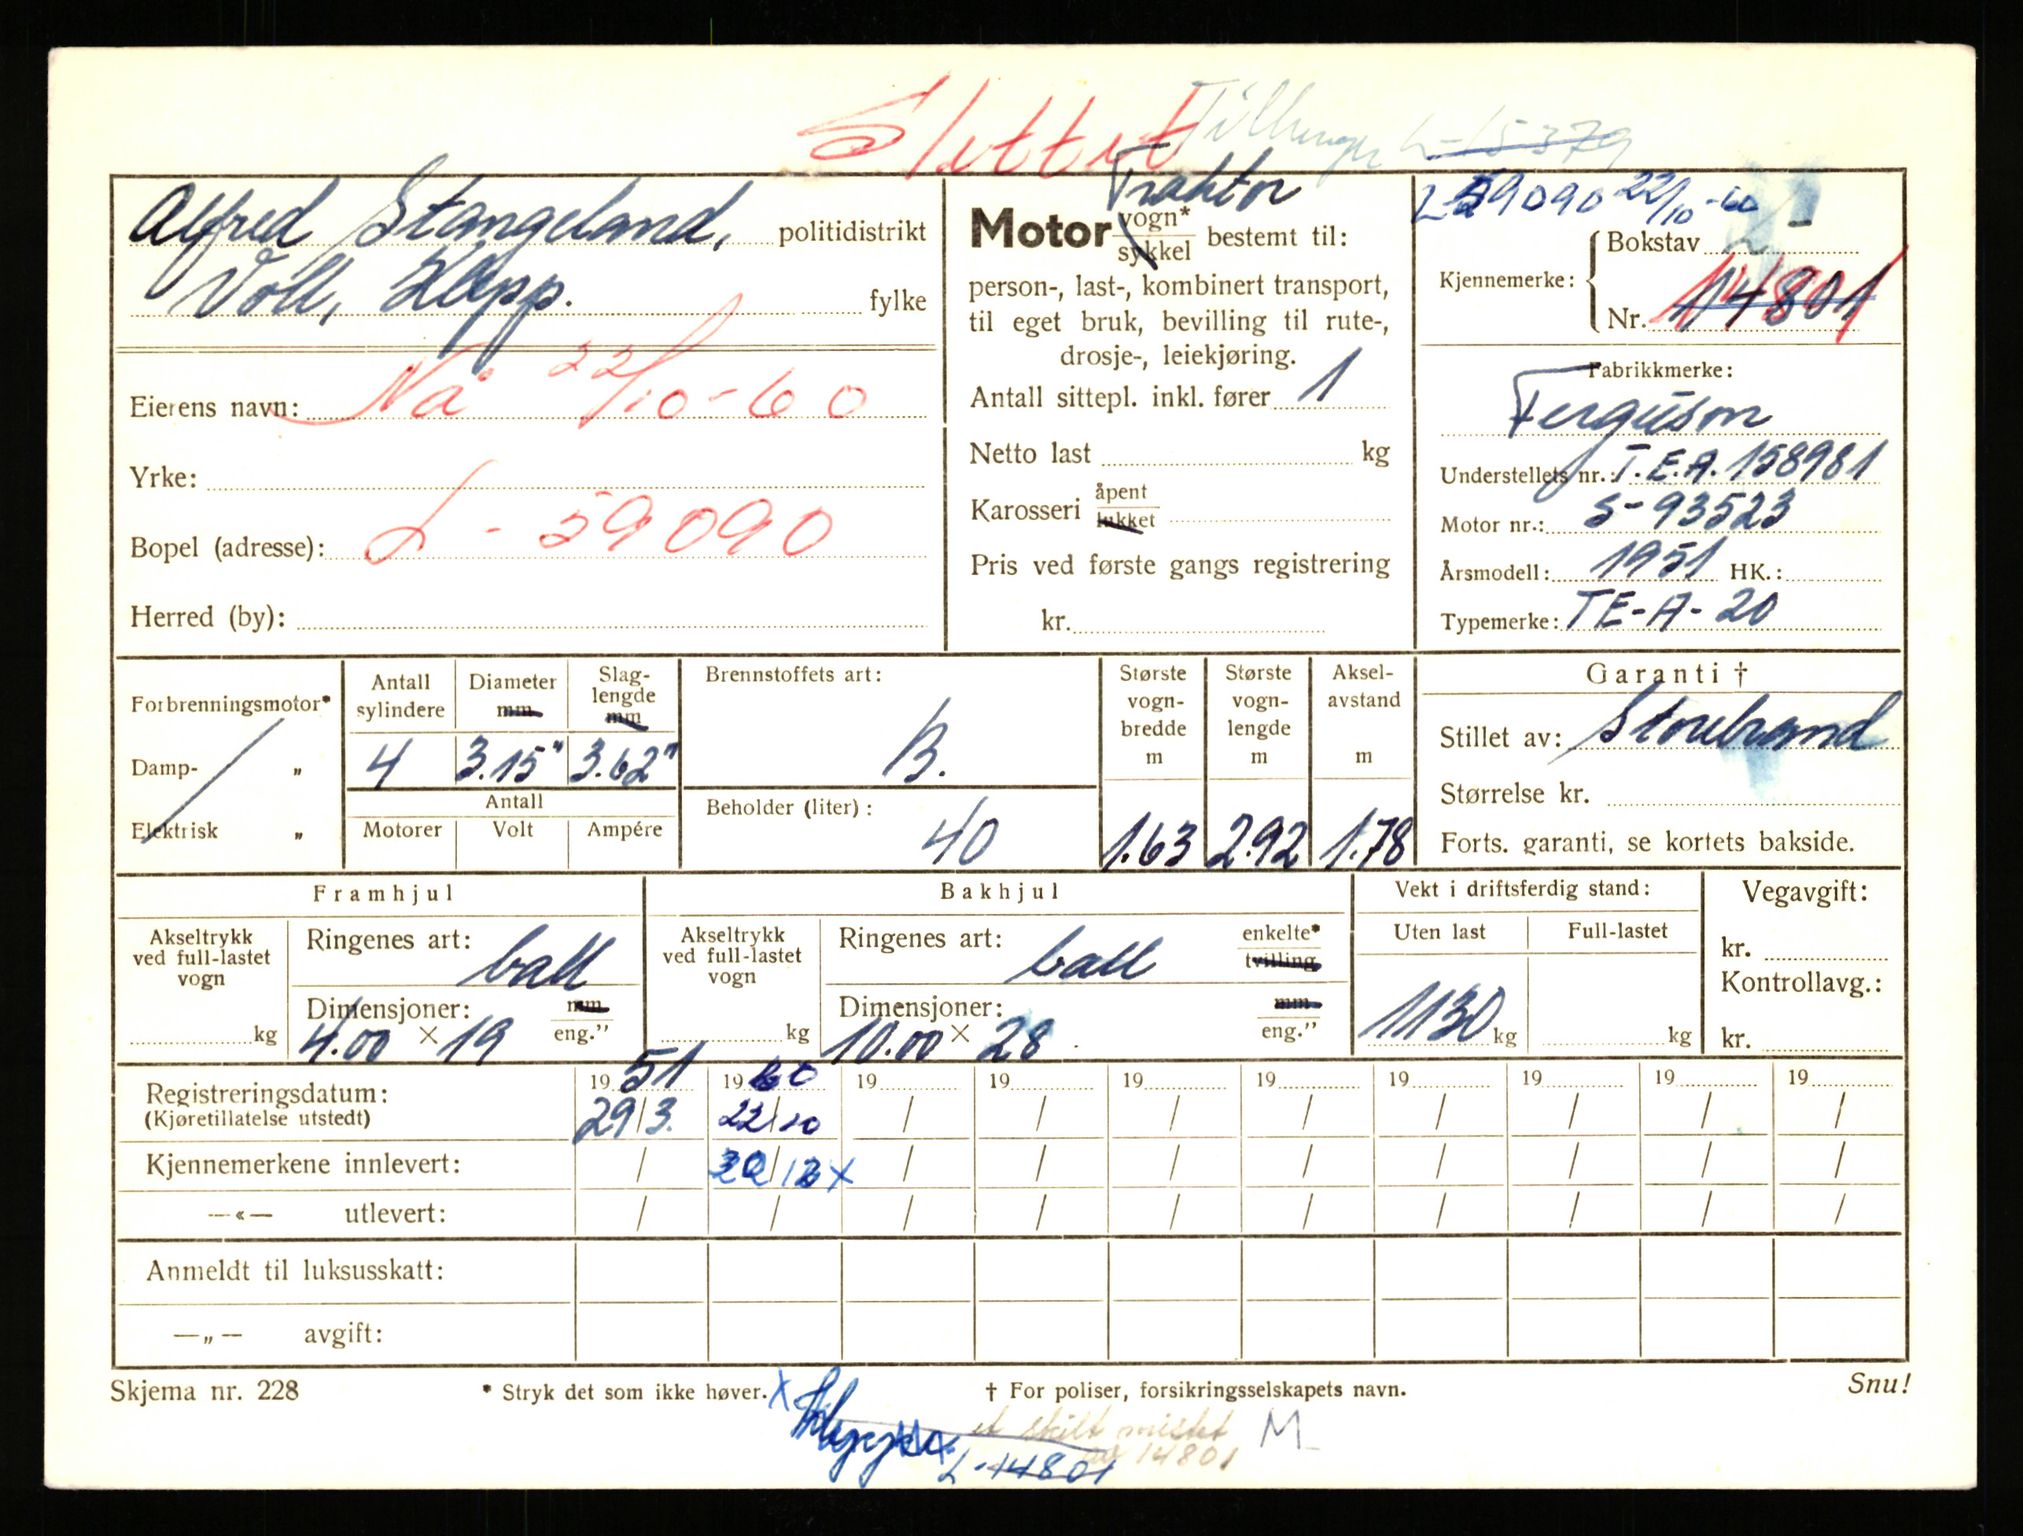 Slettet L-15379
Alfred Stangeland, politidistrikt
Voll, Klepp. fylke
Eierens navn: Nå 22/10-60
Yrke:
Bopel (adresse): L - 59090
Herred (by):
Traktor
Motor vogn* sykkel bestemt til:
person-, last-, kombinert transport,
til eget bruk, bevilling til rute-,
drosje-, leiekjøring.
Antall sittepl. inkl. fører 1
Netto last kg
Karosseri åpent lukket
Pris ved første gangs registrering
kr.
L-59090 22/10-60
Kjennemerke: Bokstav L
Nr. 14801
Fabrikkmerke:
Ferguson
Understellets nr.: T.E.A. 158981
Motor nr.: S-93523
Årsmodell: 1951 HK.:
Typemerke: TE-A-20
Forbrenningsmotor*
Damp- „
Elektrisk „
Antall sylindere
Diameter mm
Slaglengde mm
4 3.15" 3.62"
Antall
Motorer Volt Ampére
Brennstoffets art:
B.
Beholder (liter):
40
Største vognbredde m
1.63
Største vognlengde m
2.92
Akselavstand m
1.78
Garanti †
Stillet av: Storebrand
Størrelse kr.
Forts. garanti, se kortets bakside.
Framhjul
Akseltrykk ved full-lastet vogn
kg
Ringenes art: ball
Dimensjoner: mm
4.00 × 19 eng."
Bakhjul
Akseltrykk ved full-lastet vogn
kg
Ringenes art: ball enkelte* tvilling
Dimensjoner: mm
10.00 × 28 eng."
Vekt i driftsferdig stand:
Uten last Full-lastet
1130 kg kg
Vegavgift:
kr.
Kontrollavg.:
kr.
Registreringsdatum: 1951 1960 19 19 19 19 19 19 19 19
(Kjøretillatelse utstedt) 29/3. 22/10 / / / / / / / /
Kjennemerkene innlevert: / / x / / / / / / / /
—«— utlevert: / / / / / / / / / /
Anmeldt til luksusskatt:
—„— avgift:
Skjema nr. 228 * Stryk det som ikke høver. † For poliser, forsikringsselskapets navn. Snu!
x et skilt mistet M
L-14801 av 14801